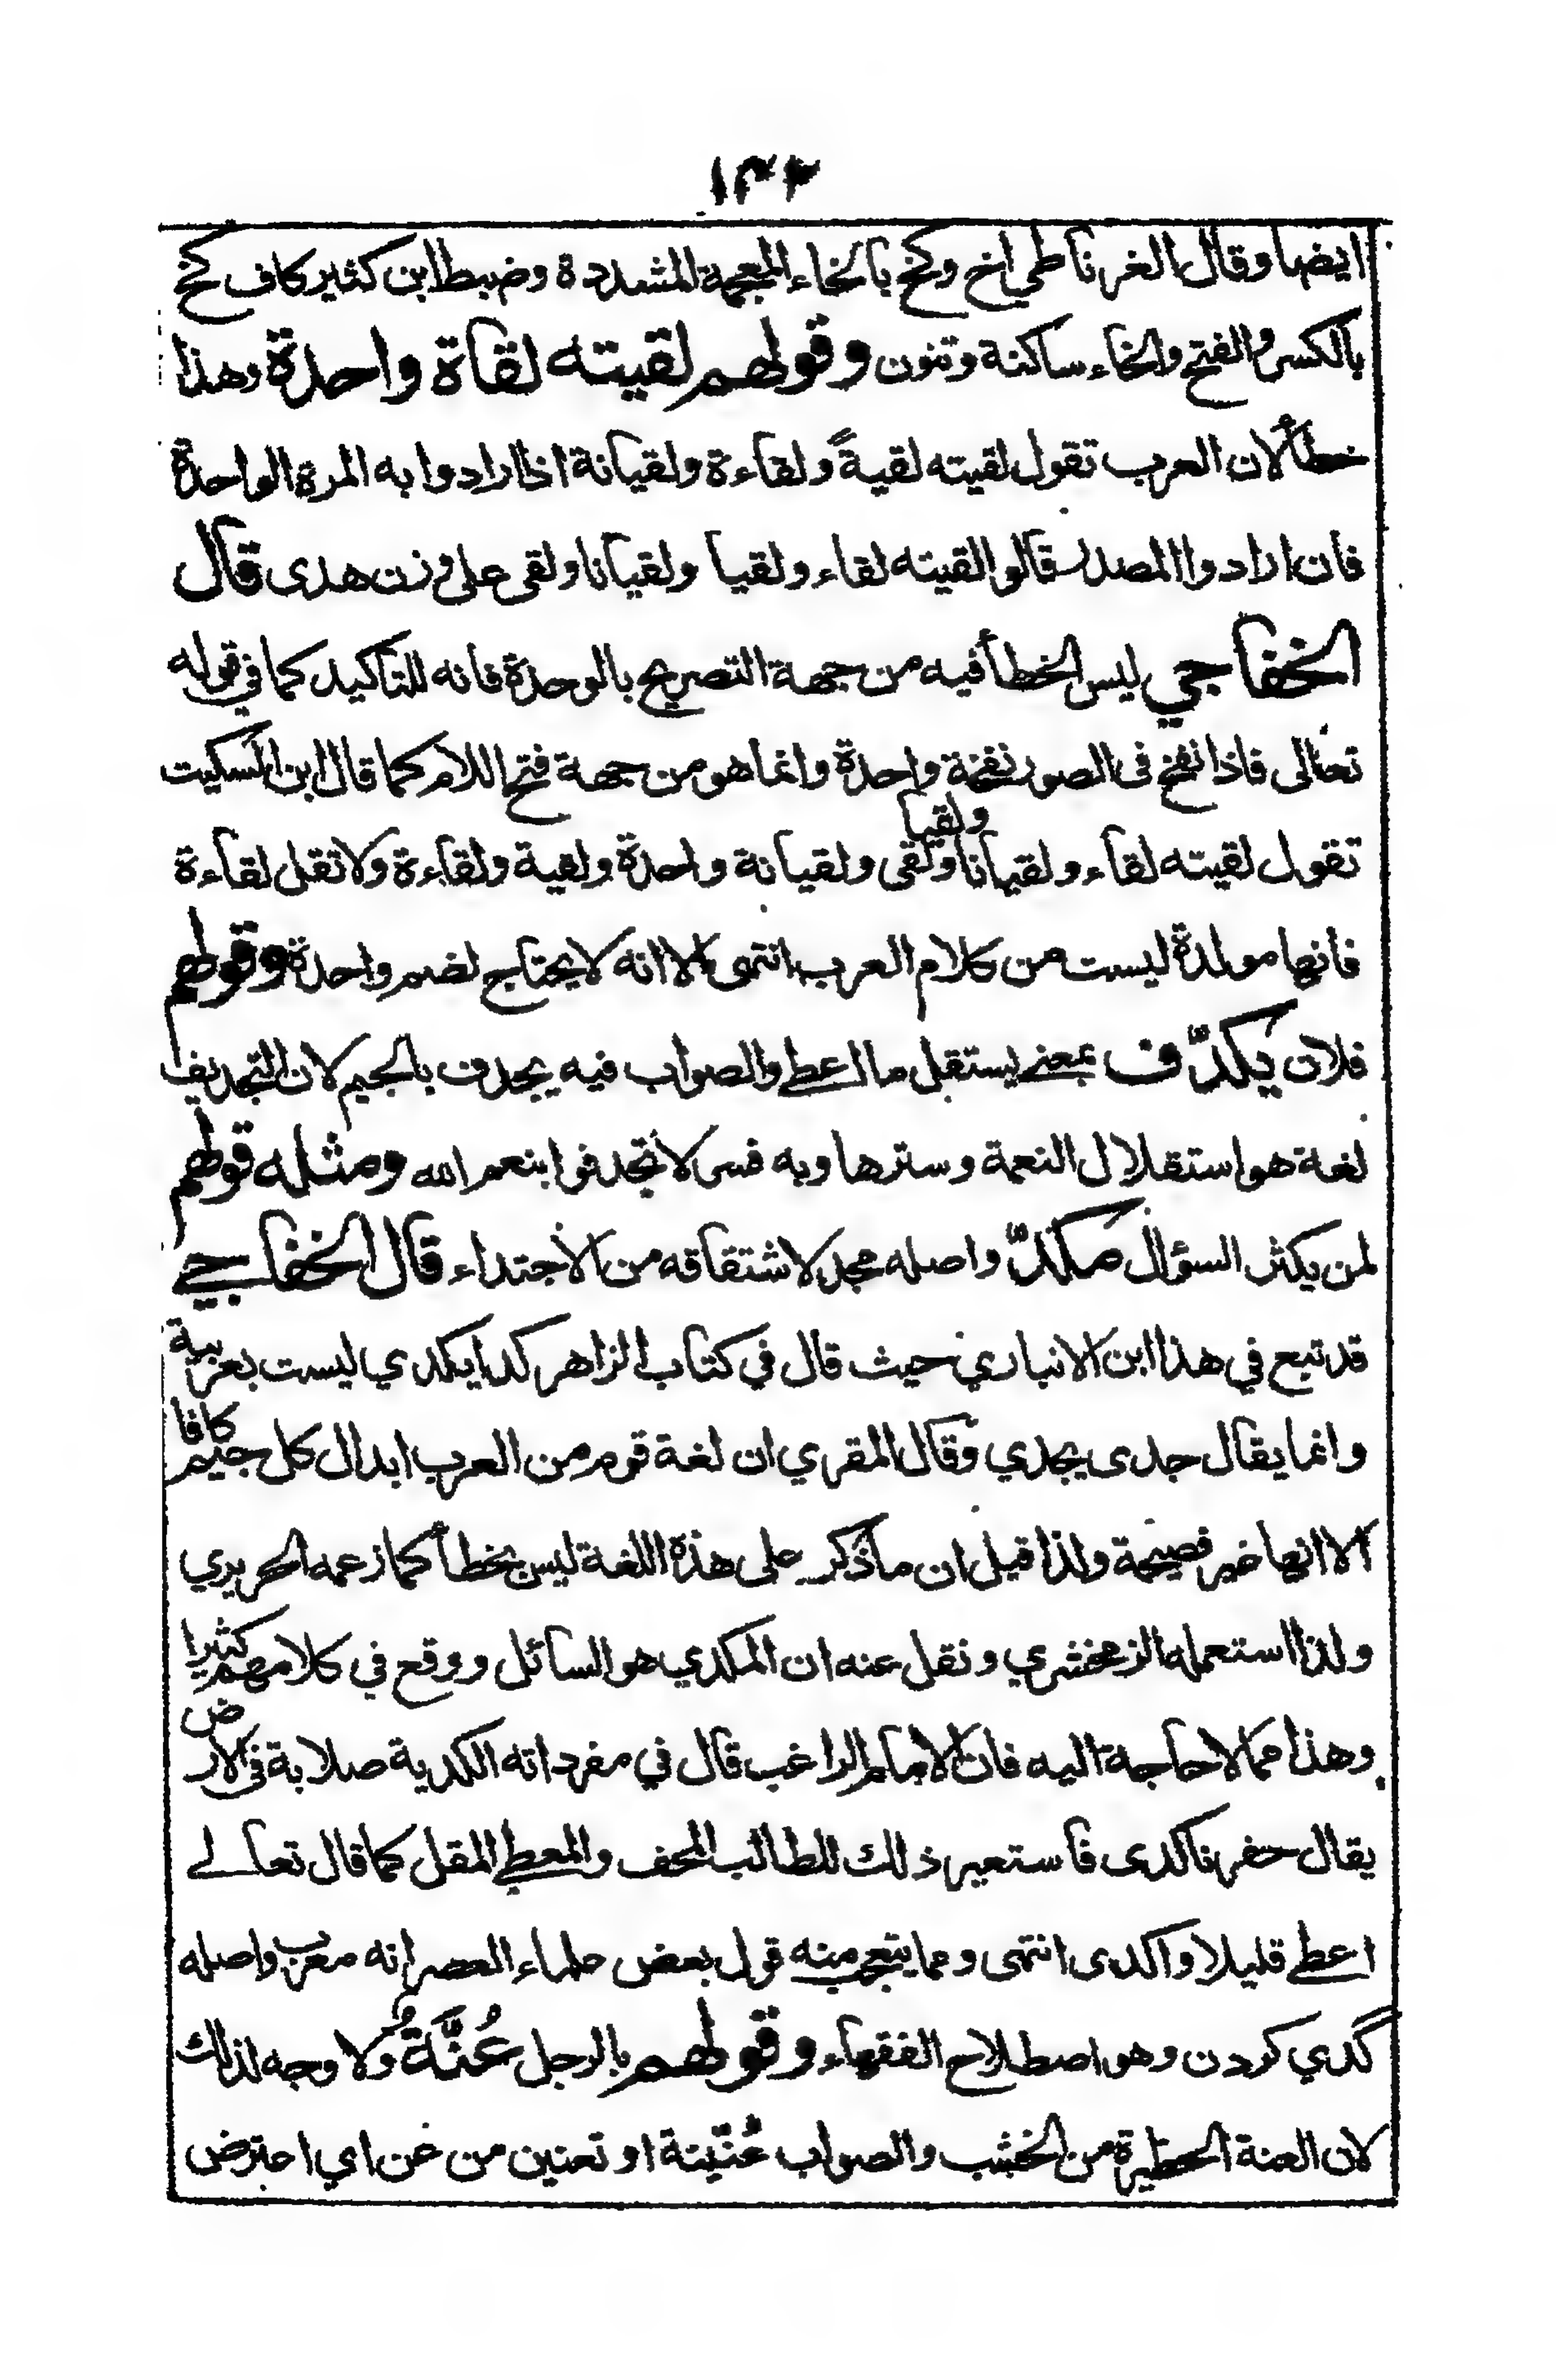 ١٣٢
ايضا وقال الغرناطي اخ وكخ بالخاء المعجمة المشددة وضبط ابن كثير كاف كخ
بالكسر والفتح والخاء ساكنة وتنون وقولهم لقيته لقاة واحدة وهذا
خطألان العرب تقول لقيته لقيةً ولقاءة ولقيانة اذا ارادوا به المرة الواحدة
فان ارادوا المصدر قالوا لقيته لقاء ولقيا ولقيانا ولقى على وزن هدى قال
الخفاجي ليس الخطأ فيه من جهة التصريح بالوحدة فانه للتاكيد كما في قوله
تعالى فاذا نفخ فى الصور نفخة واحدة وانما هو من جهة فتح اللام كما قال ابن السكيت
تقول لقيته لقاء ولقيانا ولقيا ولقى ولقيانة واحدة ولقية ولقاءة ولا تقل لقاءة
فانها مولدة ليست من كلام العرب انتهى الا انه لا يحتاج لضم واحدة وقولهم
فلان يكدّف بمعنے يستقل ما اعطے والصواب فيه يجدف بالجيم لان التجديف
لغة هو استقلال النعمة وسترها وبه فسر لا تجدفوا بنعم الله ومثله قولهم
لمن يكثر السؤال مكدّ واصله مجد لاشتقاقه من الاجتداء قال الخفاجے
قد تبع في هذا ابن الانباري حيث قال في كتاب الزاهر كدا يكدي ليست بعربية
وانما يقال جدى يجدي وقال المقري ان لغة قوم من العرب ابدال كل جيم كافا
الا انها غير فصيحة ولذا قيل ان ما ذكر على هذه اللغة ليس بخطأ كما زعمه الحريري
ولذا استعمله الزمخشري ونقل عنه ان المكدي هو السائل ووقع في كلامهم كثيرا
وهذا مما لا حاجة اليه فان الامام الراغب قال في مفرداته الكدية صلابة فى الارض
يقال حفر فاكدى فاستعير ذلك للطالب المحف والمعطے المقل كما قال تعالے
اعطے قليلا واكدى انتهى ومما يتعجب منه قول بعض علماء العصر انه معرب واصله
گدي كردن وهو اصطلاح الفقهاء وقولهم بالرجل عُنَّةٌ ولا وجه لذلك
لان العنة الحظيرة من الخشب والصواب عُنّينة او تعنين من عن اي اعترض